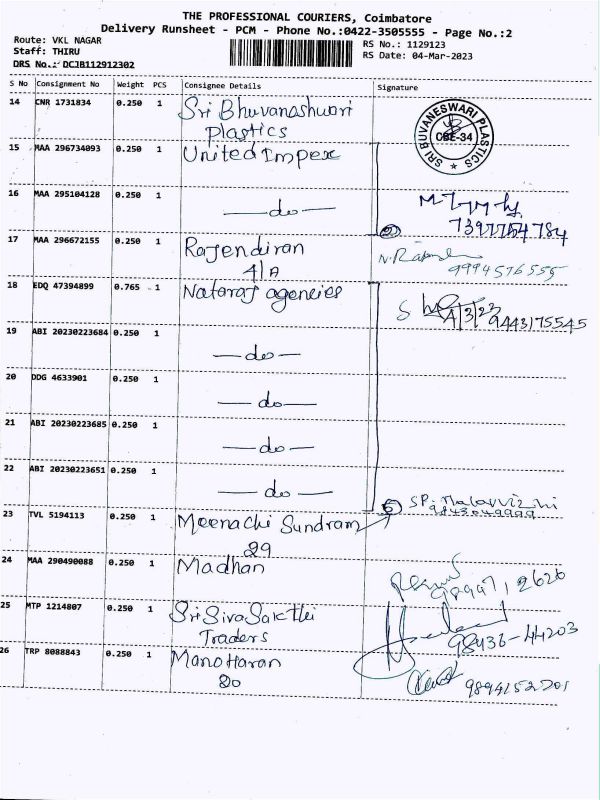 THE PROFESSIONAL COURIERS, Coimbatore
Delivery Runsheet - PCM - Phone No.:0422-3505555 - Page No.:2
Route: VKL NAGAR
Staff: THIRU
DRS No.: DCJB112912302
RS No.: 1129123
RS Date: 04-Mar-2023
S No Consignment No Weight PCS Consignee Details Signature
14 CNR 1731834 0.250 1 Sri Bhuvaneshwari
Plastics
SRI BUVANESWARI PLASTICS
CBE-34
15 MAA 296734093 0.250 1 United Impex
16 MAA 295104128 0.250 1 —do—
②
17 MAA 296672155 0.250 1 Rajendiran
4/A
9994576555
18 EDQ 47394899 0.765 1 Nataraj agencies
4/3/23 9443175545
19 ABI 20230223684 0.250 1 —do—
20 DDG 4633901 0.250 1 —do—
21 ABI 20230223685 0.250 1 —do—
22 ABI 20230223651 0.250 1 —do—
23 TVL 5194113 0.250 1 Meenachi Sundram
29
24 MAA 290490088 0.250 1 Madhan
25 MTP 1214807 0.250 1 Sri Siva Sakthi
Traders
98436-44203
26 TRP 8088843 0.250 1 Manoharan
20